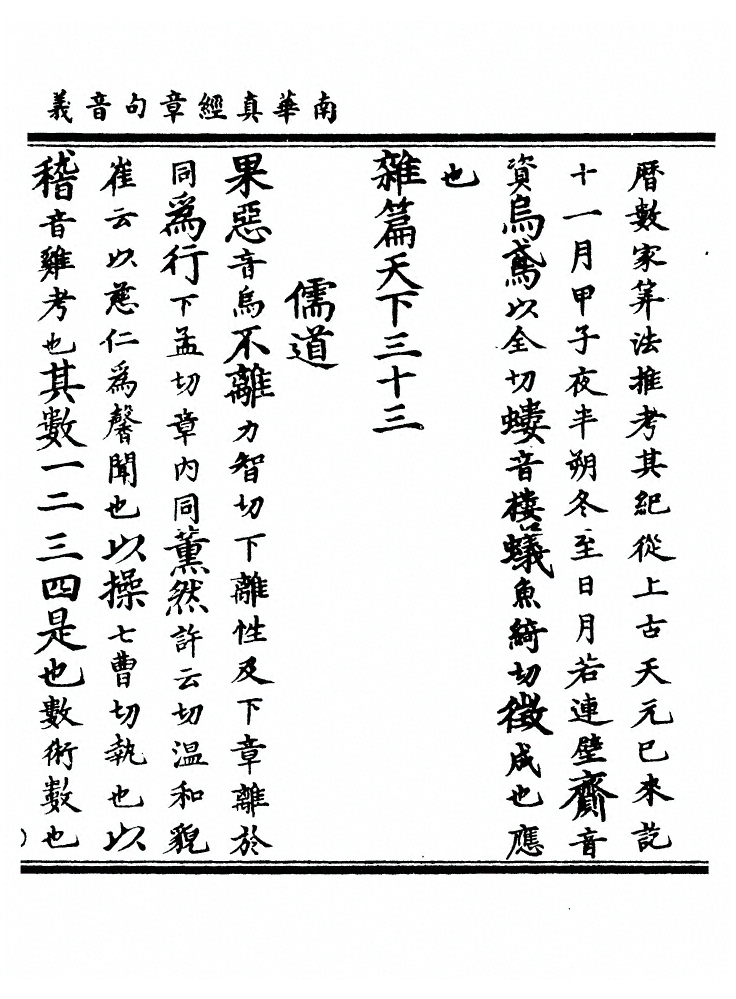 南華真經章句音義
曆數家筭法推考其紀從上古天元已來訖
十一月甲子夜半朔冬至日月若連璧齎音
資烏鳶以全切螻音樓蟻魚綺切徵成也應
也
雜篇天下三十三
儒道
果惡音烏不離力智切下離性及下章離於
同爲行下孟切章内同薰然許云切温和貌
崔云以慈仁爲馨聞也以操七曹切執也以
稽音雞考也其數一二三四是也數術數也